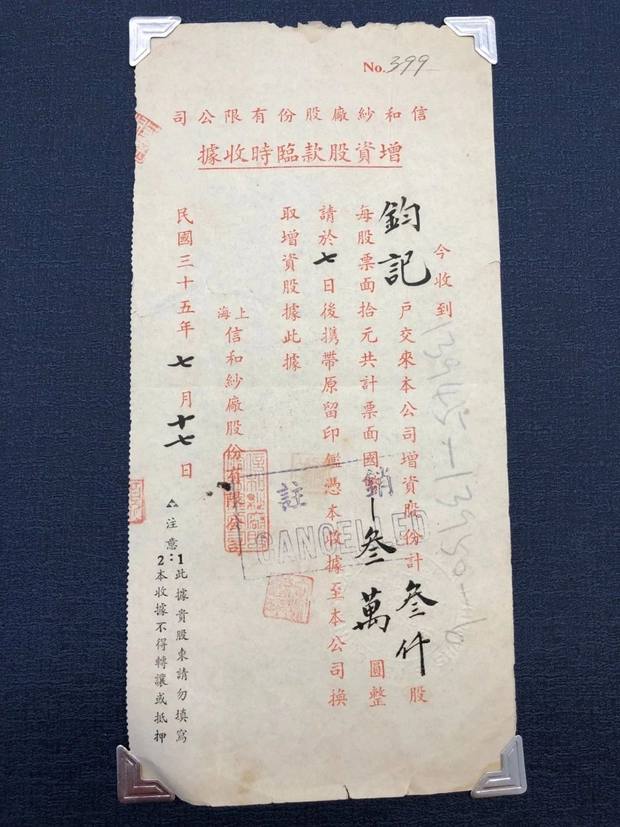 No. 399
信和紗廠股份有限公司
增資股款臨時收據
今收到
鈞記戶交來本公司增資股份計叁仟股
每股票面拾元共計票面國幣叁萬圓整
請於七日後攜帶原留印鑑憑本收據至本公司換
取增資股據此據
上海信和紗廠股份有限公司
民國三十五年七月十七日
註銷
CANCELLED
注意：1此據貴股東請勿填寫
2本收據不得轉讓或抵押